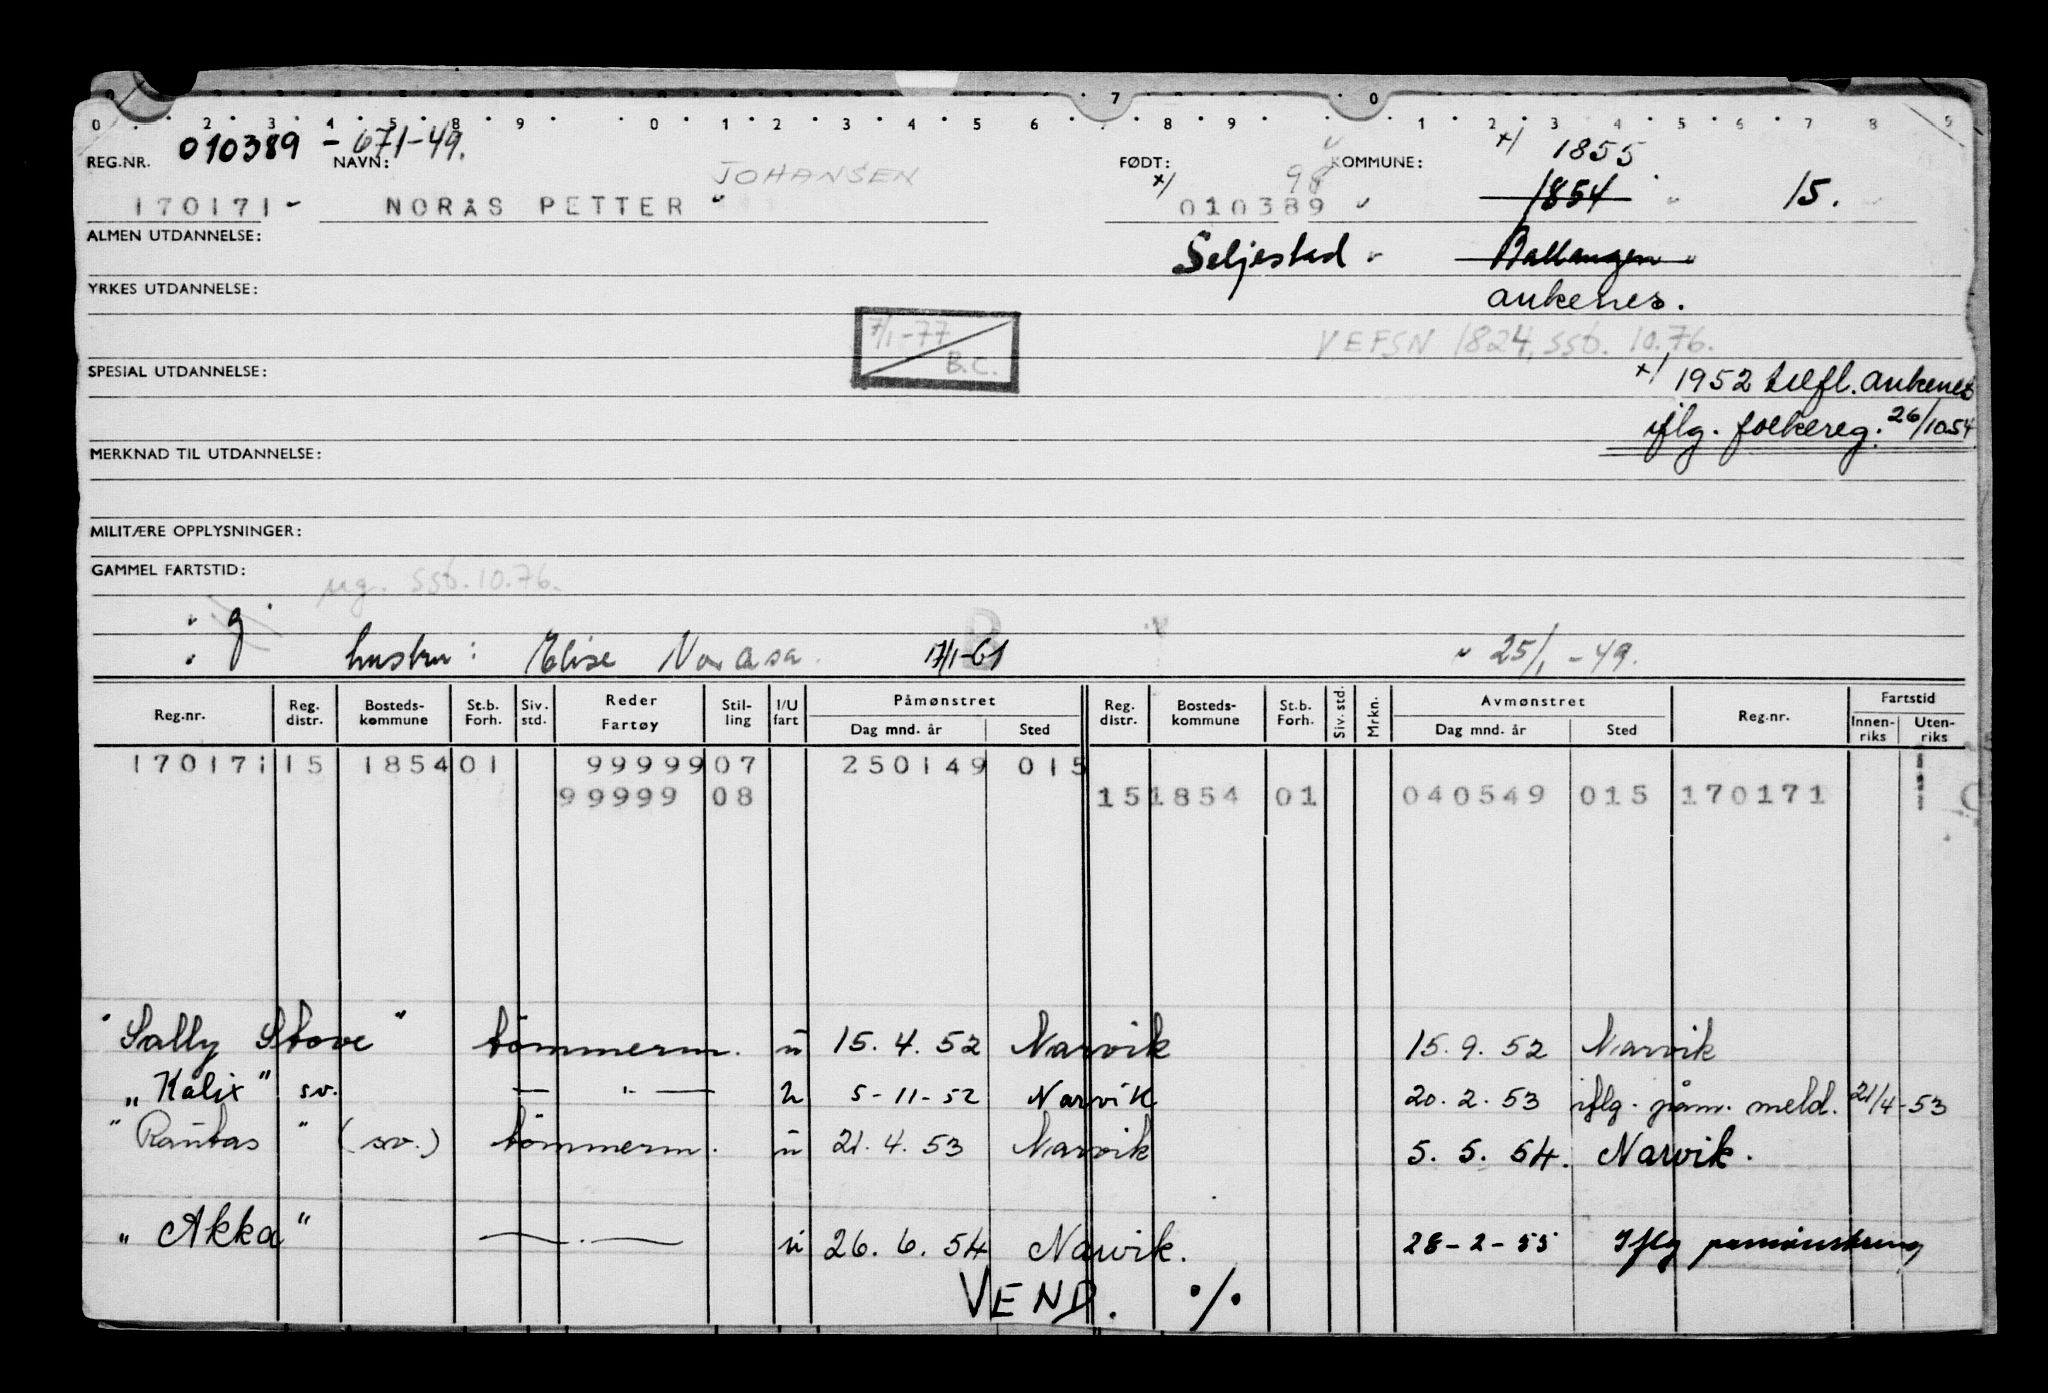 0 2 3 4 5 8 9 0 1 2 3 4 5 6 7 8 9 0 1 2 3 4 5 6 7 8 9
010389 - 671-49.
REG.NR. NAVN: JOHANSEN FØDT: KOMMUNE: x) 1855
170171- NORÅS PETTER x) 010389 98 1854 15.
ALMEN UTDANNELSE: Seljestad Ballangen
YRKES UTDANNELSE: ankenes.
7/1-77 B.C. VEFSN 1824, ssb. 10.76.
SPESIAL UTDANNELSE: x) 1952 tilfl. ankenes
iflg. folkereg. 26/10 54
MERKNAD TIL UTDANNELSE:
MILITÆRE OPPLYSNINGER:
GAMMEL FARTSTID: ug. ssb. 10.76.
g
hustru: Elise Noraså. 17/1-61 25/1-49.
Reg.nr. Reg. distr. Bosteds-kommune St.b. Forh. Siv. std. Reder Fartøy Stil-ling I/U fart Påmønstret Dag mnd. år Sted Reg. distr. Bosteds-kommune St.b. Forh. Siv. std. Mrkn. Avmønstret Dag mnd. år Sted Reg.nr. Fartstid Innen-riks Uten-riks
170171 15 1854 01 99999 07 250149 015
99999 08 15 1854 01 040549 015 170171
"Sally Stove" tömmerm. u 15.4.52 Narvik 15.9.52 Narvik
"Kalix" sv. — " — u 5-11-52 Narvik 20.2.53 iflg. påm. meld. 21/4-53
"Rautas" (sv.) tömmerm. u 21.4.53 Narvik 5.5.54. Narvik.
"Akka" — . — u 26.6.54 Narvik. 28-2-55 Iflg påmönstring
VEND. ./.